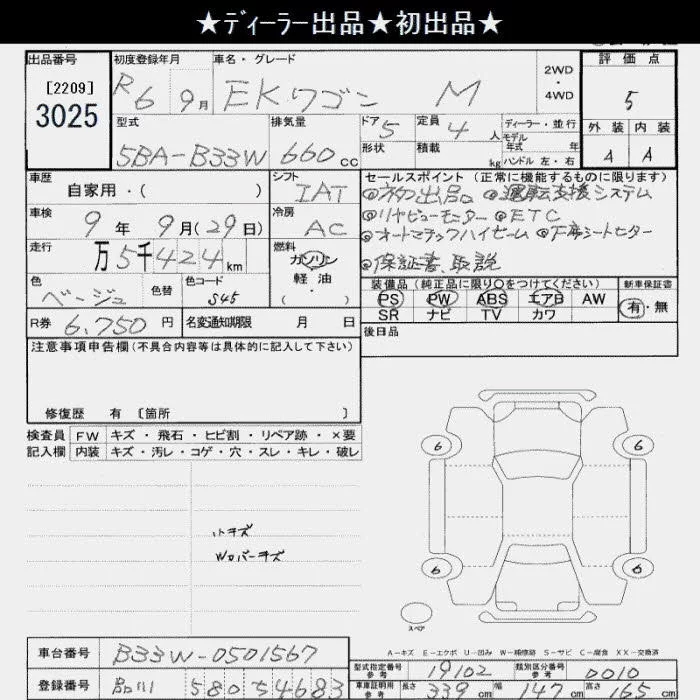 ★ディーラー出品★初出品★
出品番号 初度登録年月 車名・グレード 評価点
[2209] R6 9月 EKワゴン M 2WD ・ 4WD 5
3025
型式 排気量 ドア 5 定員 4人 ディーラー・並行 外装 内装
5BA-B33W 660cc 形状 積載 kg モデル年式 年 ハンドル 左・右 4 A
車歴 自家用・( ) シフト IAT セールスポイント (正常に機能するものに限ります)
◎ネタ出品 ◎運転支援システム
車検 9年 9月(29日) 冷房 AC ◎リヤビューモニター ◎ETC
走行 万5千424km 燃料 ガソリン ◎オートマチックハイビーム ◎下席シートヒーター
軽油 ・( ) ◎保証書、取説
色 ベージュ 色替 色コード S45 装備品 (純正品に限り○をつけてください) 新車保証書
PS PW ABS エアB AW 有・無
SR ナビ TV カワ
R券 6,750円 名変通知期限 月 日 後日品
注意事項申告欄(不具合内容等は具体的に記入して下さい)
修復歴 有 [箇所 ]
検査員 FW キズ・飛石・ヒビ割・リペア跡・×要
記入欄 内装 キズ・汚レ・コゲ・穴・スレ・キレ・破レ
6 6
小キズ
Wロバーキズ
6 6
スペア
A-キズ E-エクボ U-凹み W-補修跡 S-サビ C-腐食 XX-交換済
車台番号 B33W-0501567 型式指定番号 参考 19102 類別区分番号 参考 0010
登録番号 品川 580 ち 4683 車庫証明用 参考 長さ 339cm 幅 147cm 高さ 165cm